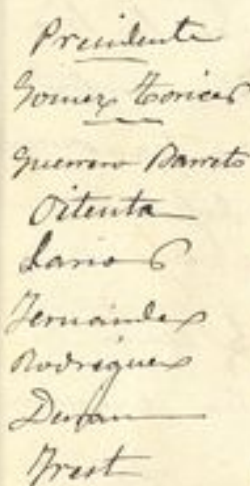 Presidente
Gomez Torices
Guerrero Barreto
Oitenta
Larios
Fernandez
Rodriguez
Duran